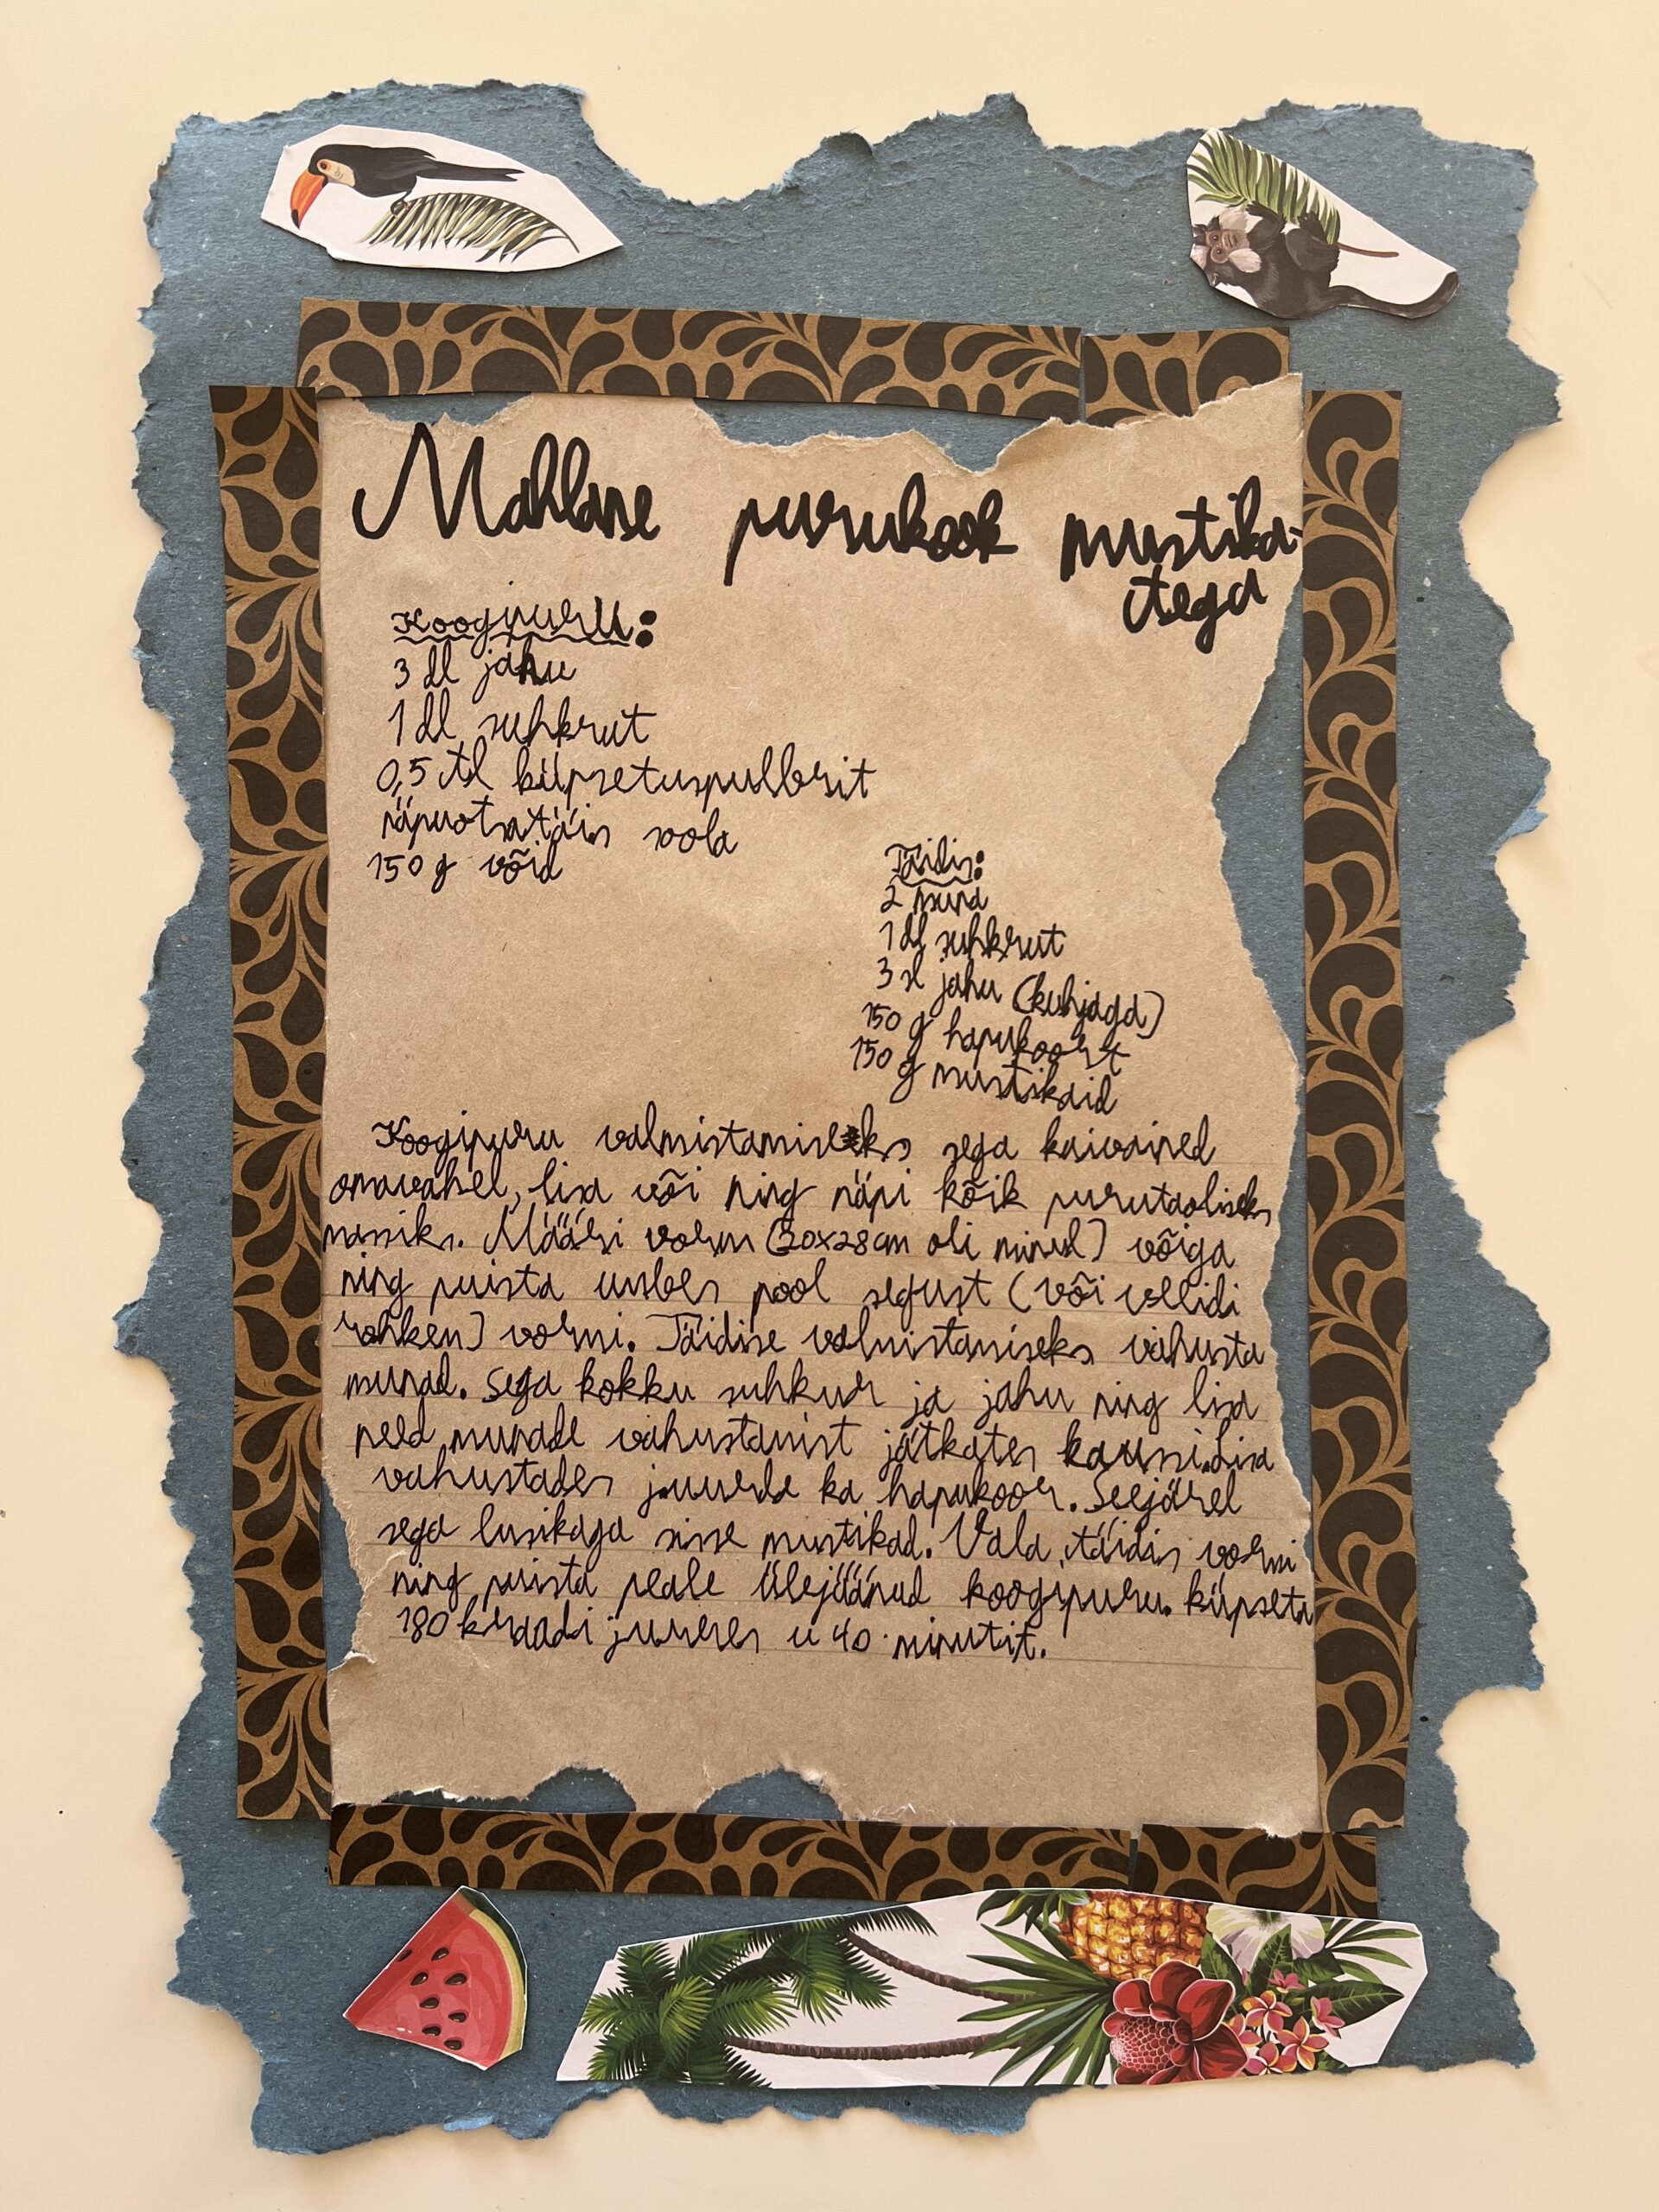 Mahlane purukook mustika-
tega
Koogipuru:
3 dl jahu
1 dl suhkrut
0,5 tl küpsetuspulbrit
näpuotsatäis soola
150 g võid
Täidis:
2 muna
1 dl suhkrut
3 sl jahu (kuhjaga)
150 g hapukoort
150 g mustikaid
Koogipuru valmistamiseks sega kuivained
omavahel, lisa või ning näpi kõik purutaoliseks
massiks. Määri vorm (20x28 cm oli minul) võiga
ning puista umbes pool segust (või veidi
rohkem) vormi. Täidise valmistamiseks vahusta
munad. Sega kokku suhkur ja jahu ning lisa
need munade vahustamist jätkates kaussi. Lisa
vahustades juurde ka hapukoor. Seejärel
sega lusikaga sisse mustikad. Vala täidis vormi
ning puista peale ülejäänud koogipuru. Küpseta
180 kraadi juures u 40 minutit.